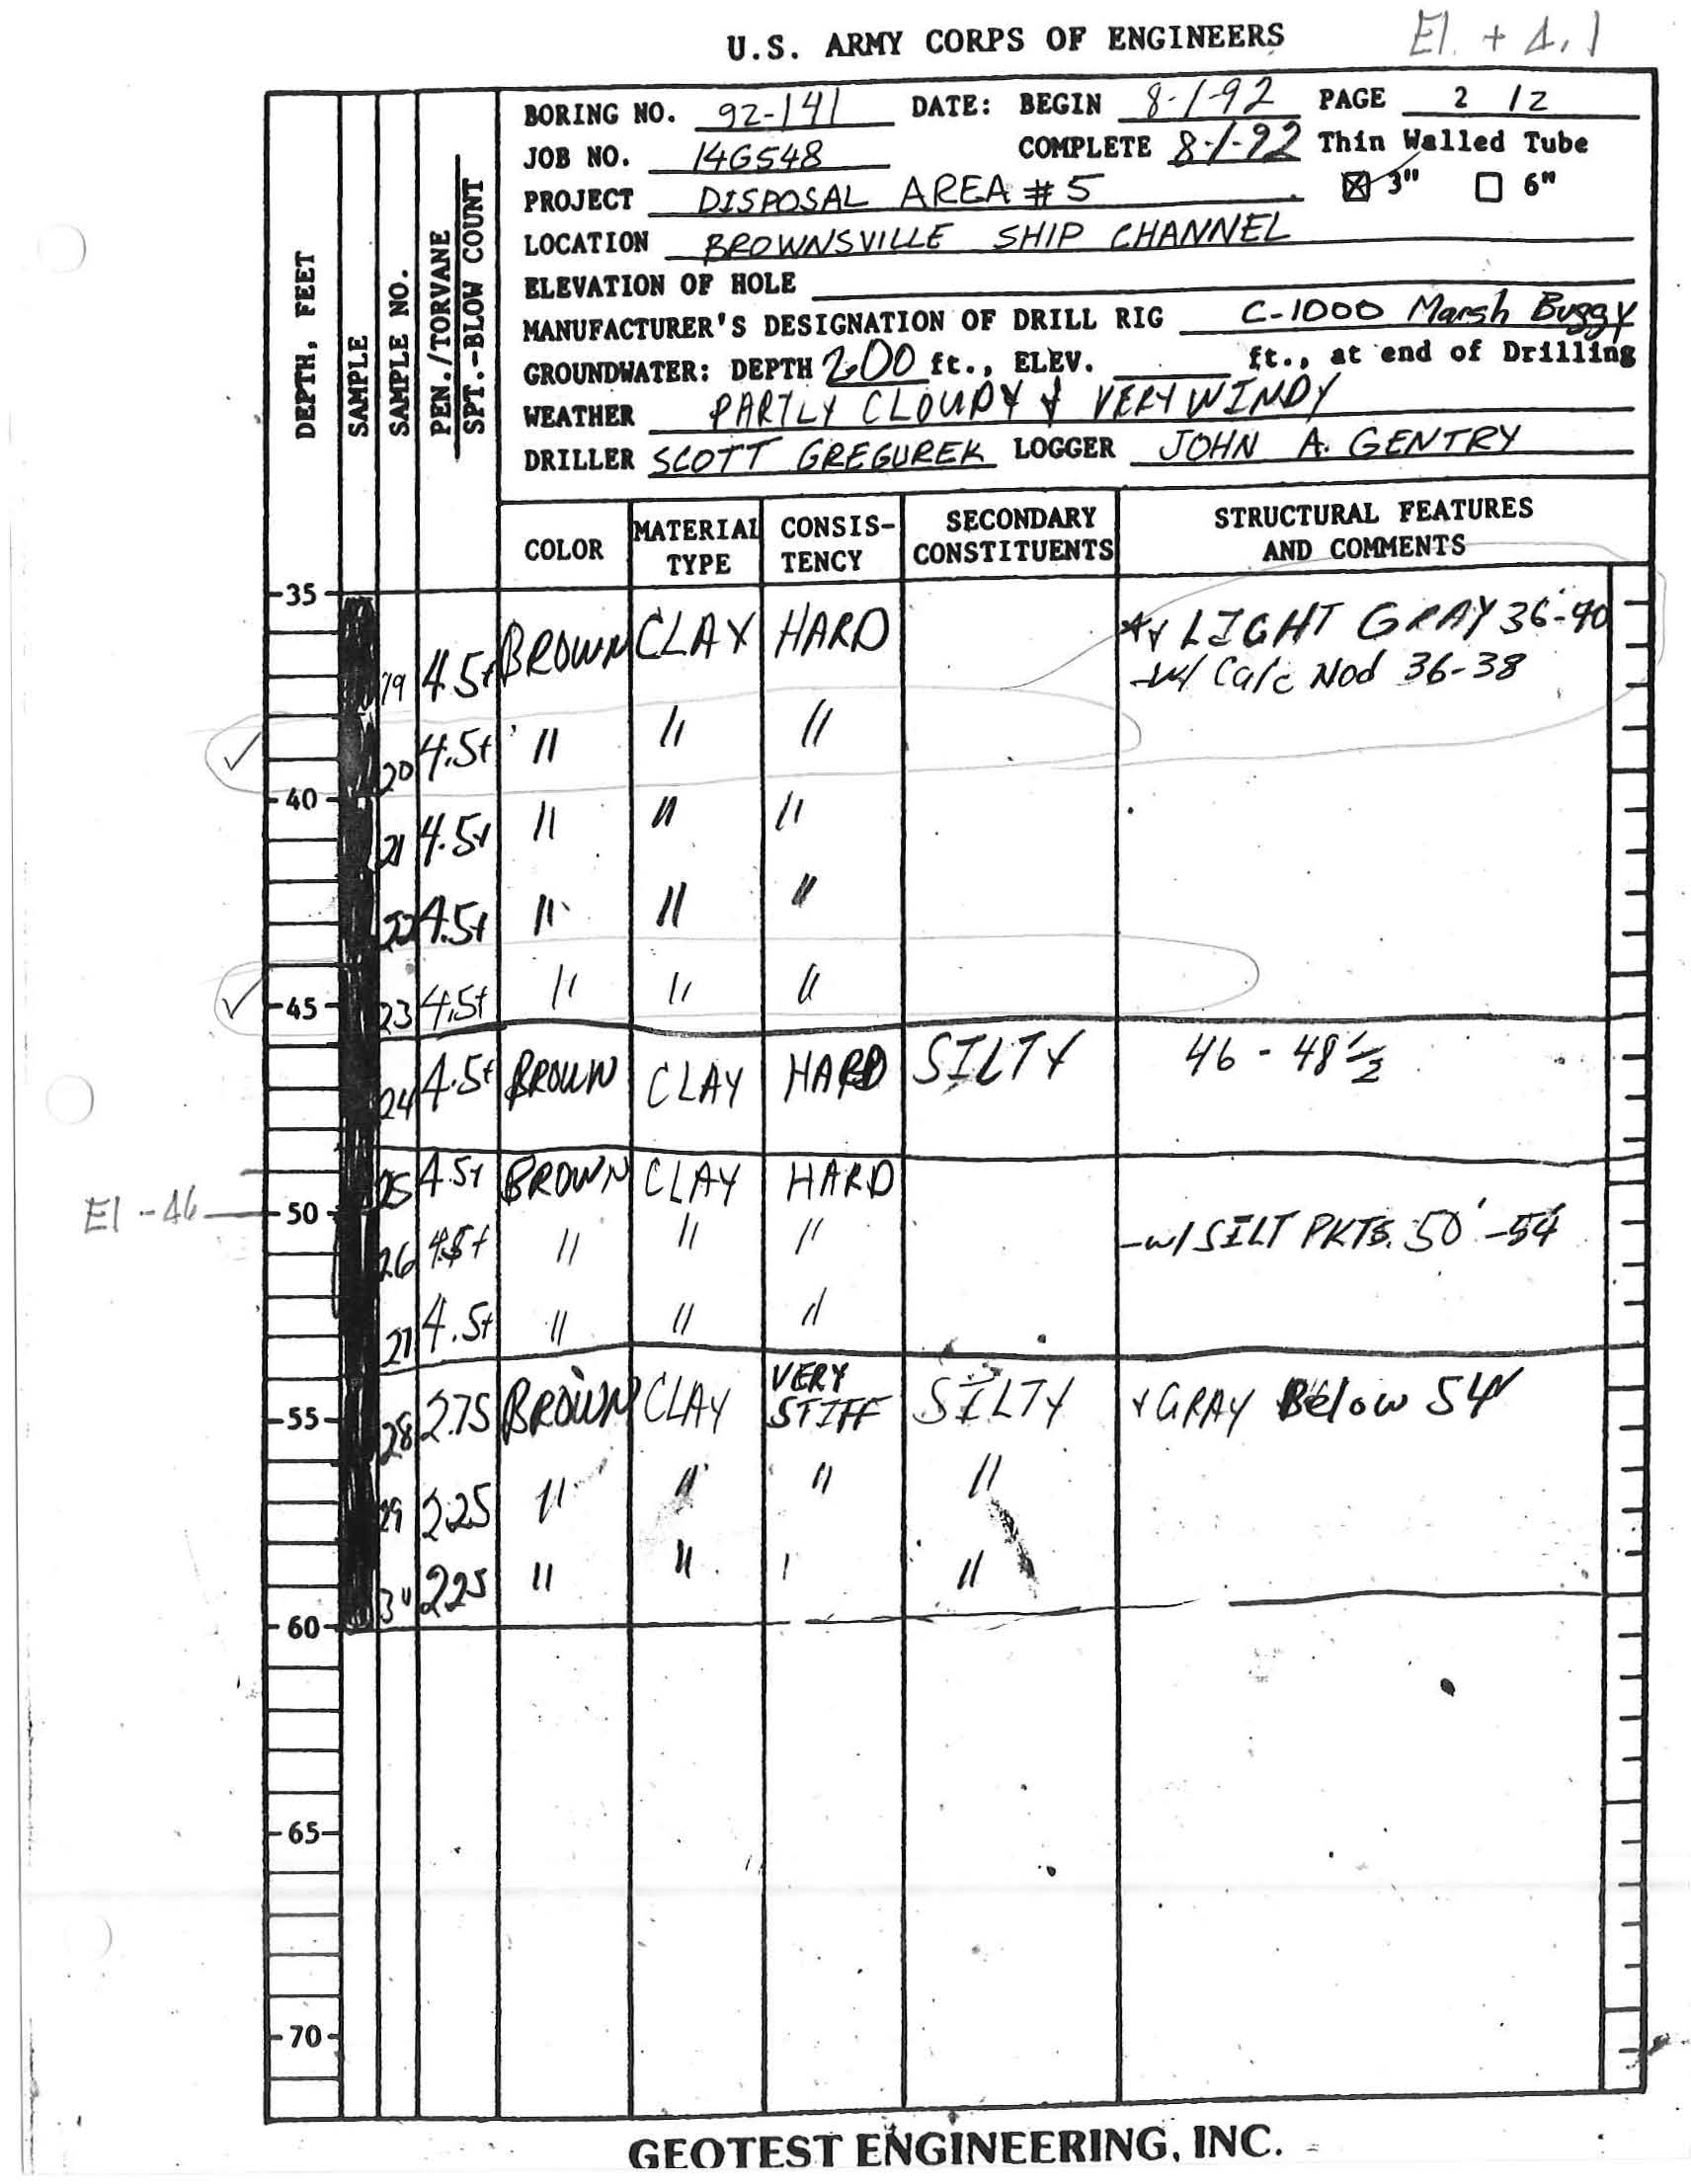 U.S. ARMY CORPS OF ENGINEERS El. + 4.1
BORING NO. 92-141 DATE: BEGIN 8-1-92 PAGE 2 /2
JOB NO. 14G548 COMPLETE 8-1-92 Thin Walled Tube
PROJECT DISPOSAL AREA #5 ☒ 3" ☐ 6"
LOCATION BROWNSVILLE SHIP CHANNEL
ELEVATION OF HOLE
MANUFACTURER'S DESIGNATION OF DRILL RIG C-1000 Marsh Buggy
GROUNDWATER: DEPTH 2.00 ft., ELEV. ft., at end of Drilling
WEATHER PARTLY CLOUDY & VERY WINDY
DRILLER SCOTT GREGUREK LOGGER JOHN A. GENTRY
DEPTH, FEET
SAMPLE
SAMPLE NO.
PEN./TORVANE
SPT.-BLOW COUNT
COLOR MATERIAL TYPE CONSIS-TENCY SECONDARY CONSTITUENTS STRUCTURAL FEATURES AND COMMENTS
35
19 4.5+ BROWN CLAY HARD & LIGHT GRAY 36'-40
-w/ Calc Nod 36-38
✓ 20 4.5+ " " "
40
21 4.5+ " " "
22 4.5+ " " "
✓ 45 23 4.5+ " " "
24 4.5+ BROWN CLAY HARD SILTY 46 - 48 1/2
25 4.5+ BROWN CLAY HARD
El -46 50
26 4.5+ " " " -w/ SILT PKTS. 50' -54
27 4.5+ " " "
55 28 2.75 BROWN CLAY VERY STIFF SILTY & GRAY Below 54'
29 2.25 " " " "
30 2.25 " " " "
60
65
70
GEOTEST ENGINEERING, INC.